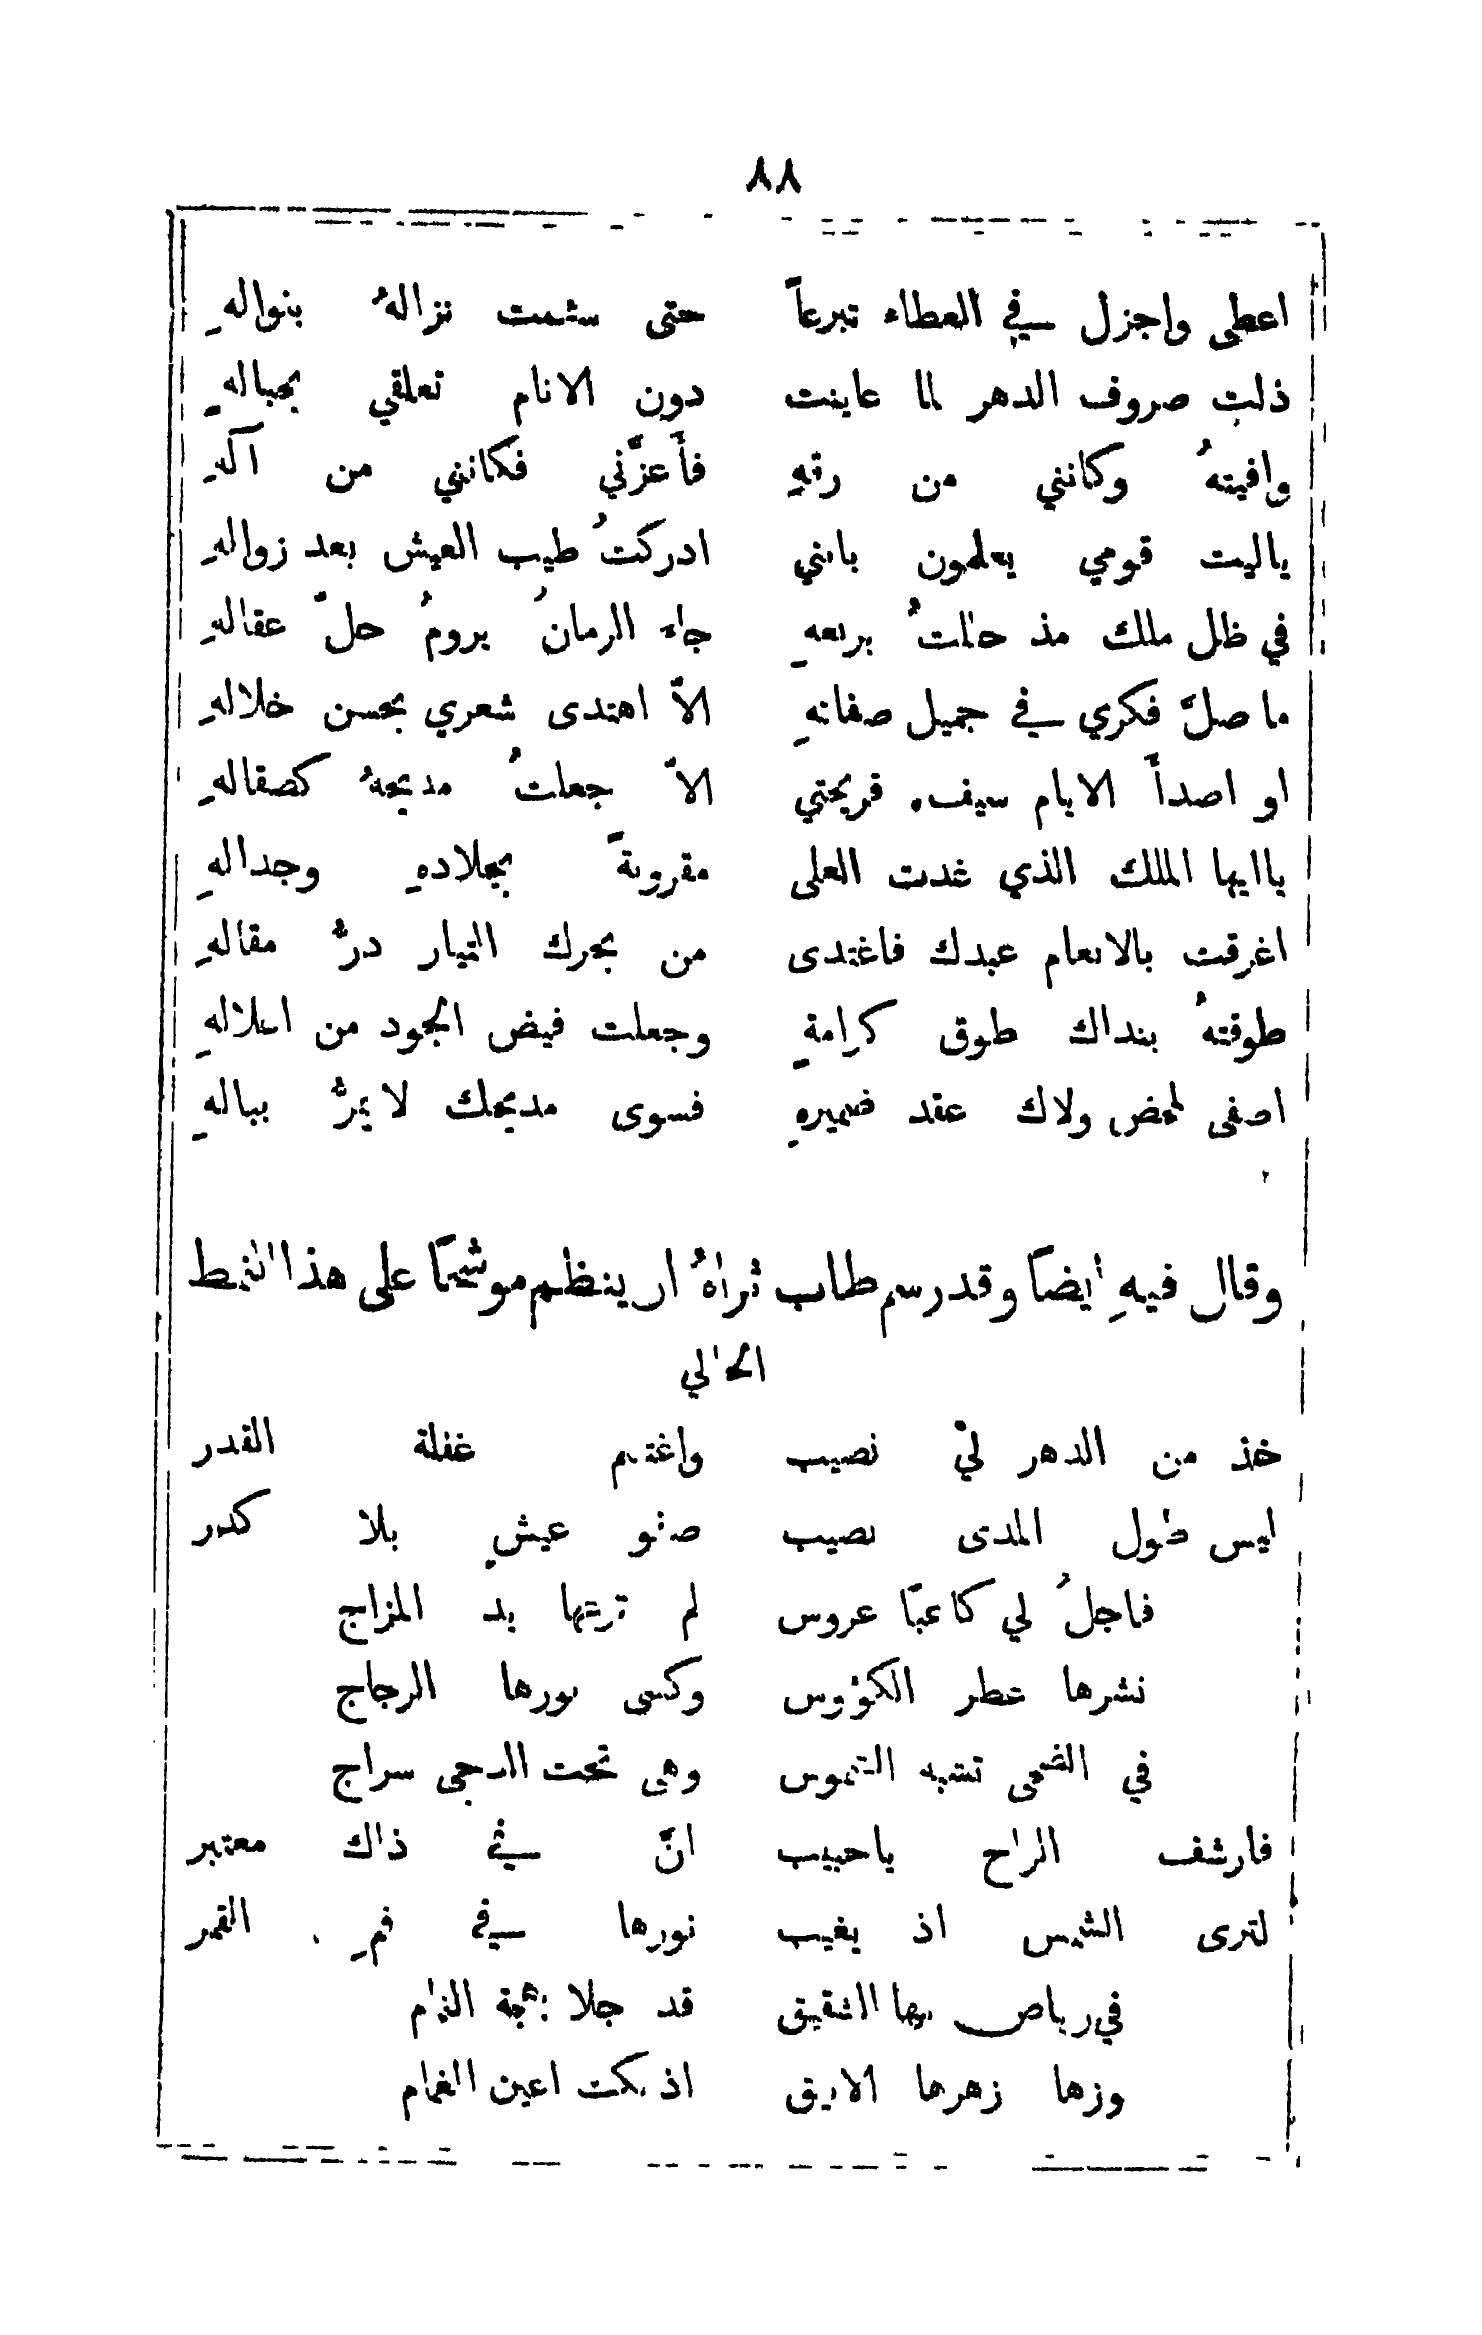 ٨٨
اعطى واجزل في العطاء تبرعاً حتى سئمت نزالهُ بنوالهِ
ذلت صروف الدهر لما عاينت دون الانام تعلقي بحبالهِ
وافيتهُ وكانني من رقهِ فأعزَّني فكانني من آلهِ
ياليت قومي يعلمون بانني ادركتُ طيب العيش بعد زوالهِ
في ظل ملك مذ حللتُ بربعهِ جاء الزمانُ يرومُ حلّ عقالهِ
ما ضلَّ فكري في جميل صفاتهِ الاّ اهتدى شعري بحسن خلالهِ
او اصدأَ الايام سيف قريحتي الاّ جعلتُ مديحهُ كصقالهِ
ياايها الملك الذي غدت العلى مقرونةً بجلادهِ وجدالهِ
اغرقت بالانعام عبدك فاغتدى من بحرك التيار درُّ مقالهِ
طوقتهُ بنداك طوق كرامةٍ وجعلت فيض الجود من اغلالهِ
اصفى لمحض ولاك عقد ضميرهِ فسوى مديحك لا يمرُّ ببالهِ
وقال فيهِ ايضاً وقد رسم طاب ثراهُ ان ينظم موشحاً على هذا النمط
الحالي
خذ من الدهر لي نصيب واغتنم غفلة القدر
ليس طول المدى نصيب صفو عيشٍ بلا كدر
فاجلُ لي كاعباً عروس لم ترعها يد المزاج
نشرها عطر الكؤوس وكسى نورها الزجاج
في الضحى تشبه الشموس وهي تحت الدجى سراج
فارشف الراح ياحبيب انَّ في ذاك معتبر
لترى الشمس اذ يغيب نورها في فمِ القمر
في رياض بها الشقيق قد جلا بهجة الثمام
وزها زهرها الانيق اذ بكت اعين الغمام